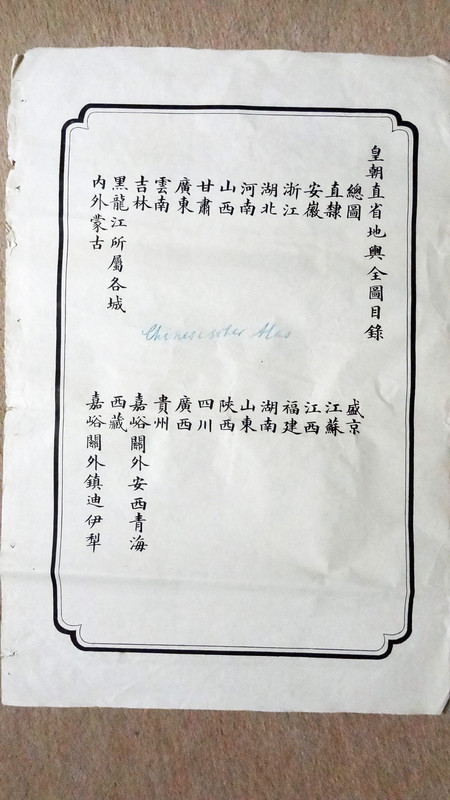 皇朝直省地輿全圖目錄
總圖
盛京
直隸
江蘇
安徽
江西
浙江
福建
湖北
湖南
河南
山東
山西
陝西
甘肅
四川
廣東
廣西
雲南
貴州
吉林
嘉峪關外安西青海
黑龍江所屬各城
西藏
內外蒙古
嘉峪關外鎮迪伊犁
Chinesischer Atlas